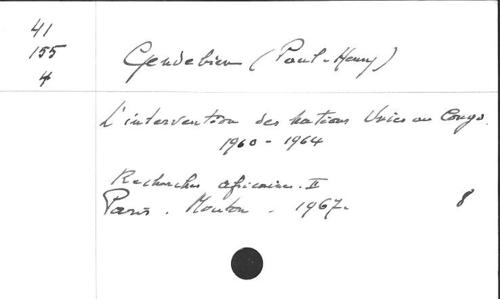 41
155
4
Gendebien (Paul-Henry)
L'intervention des Nations Unies au Congo.
1960-1964
Recherches africaines. II
Paris. Mouton. 1967.
8